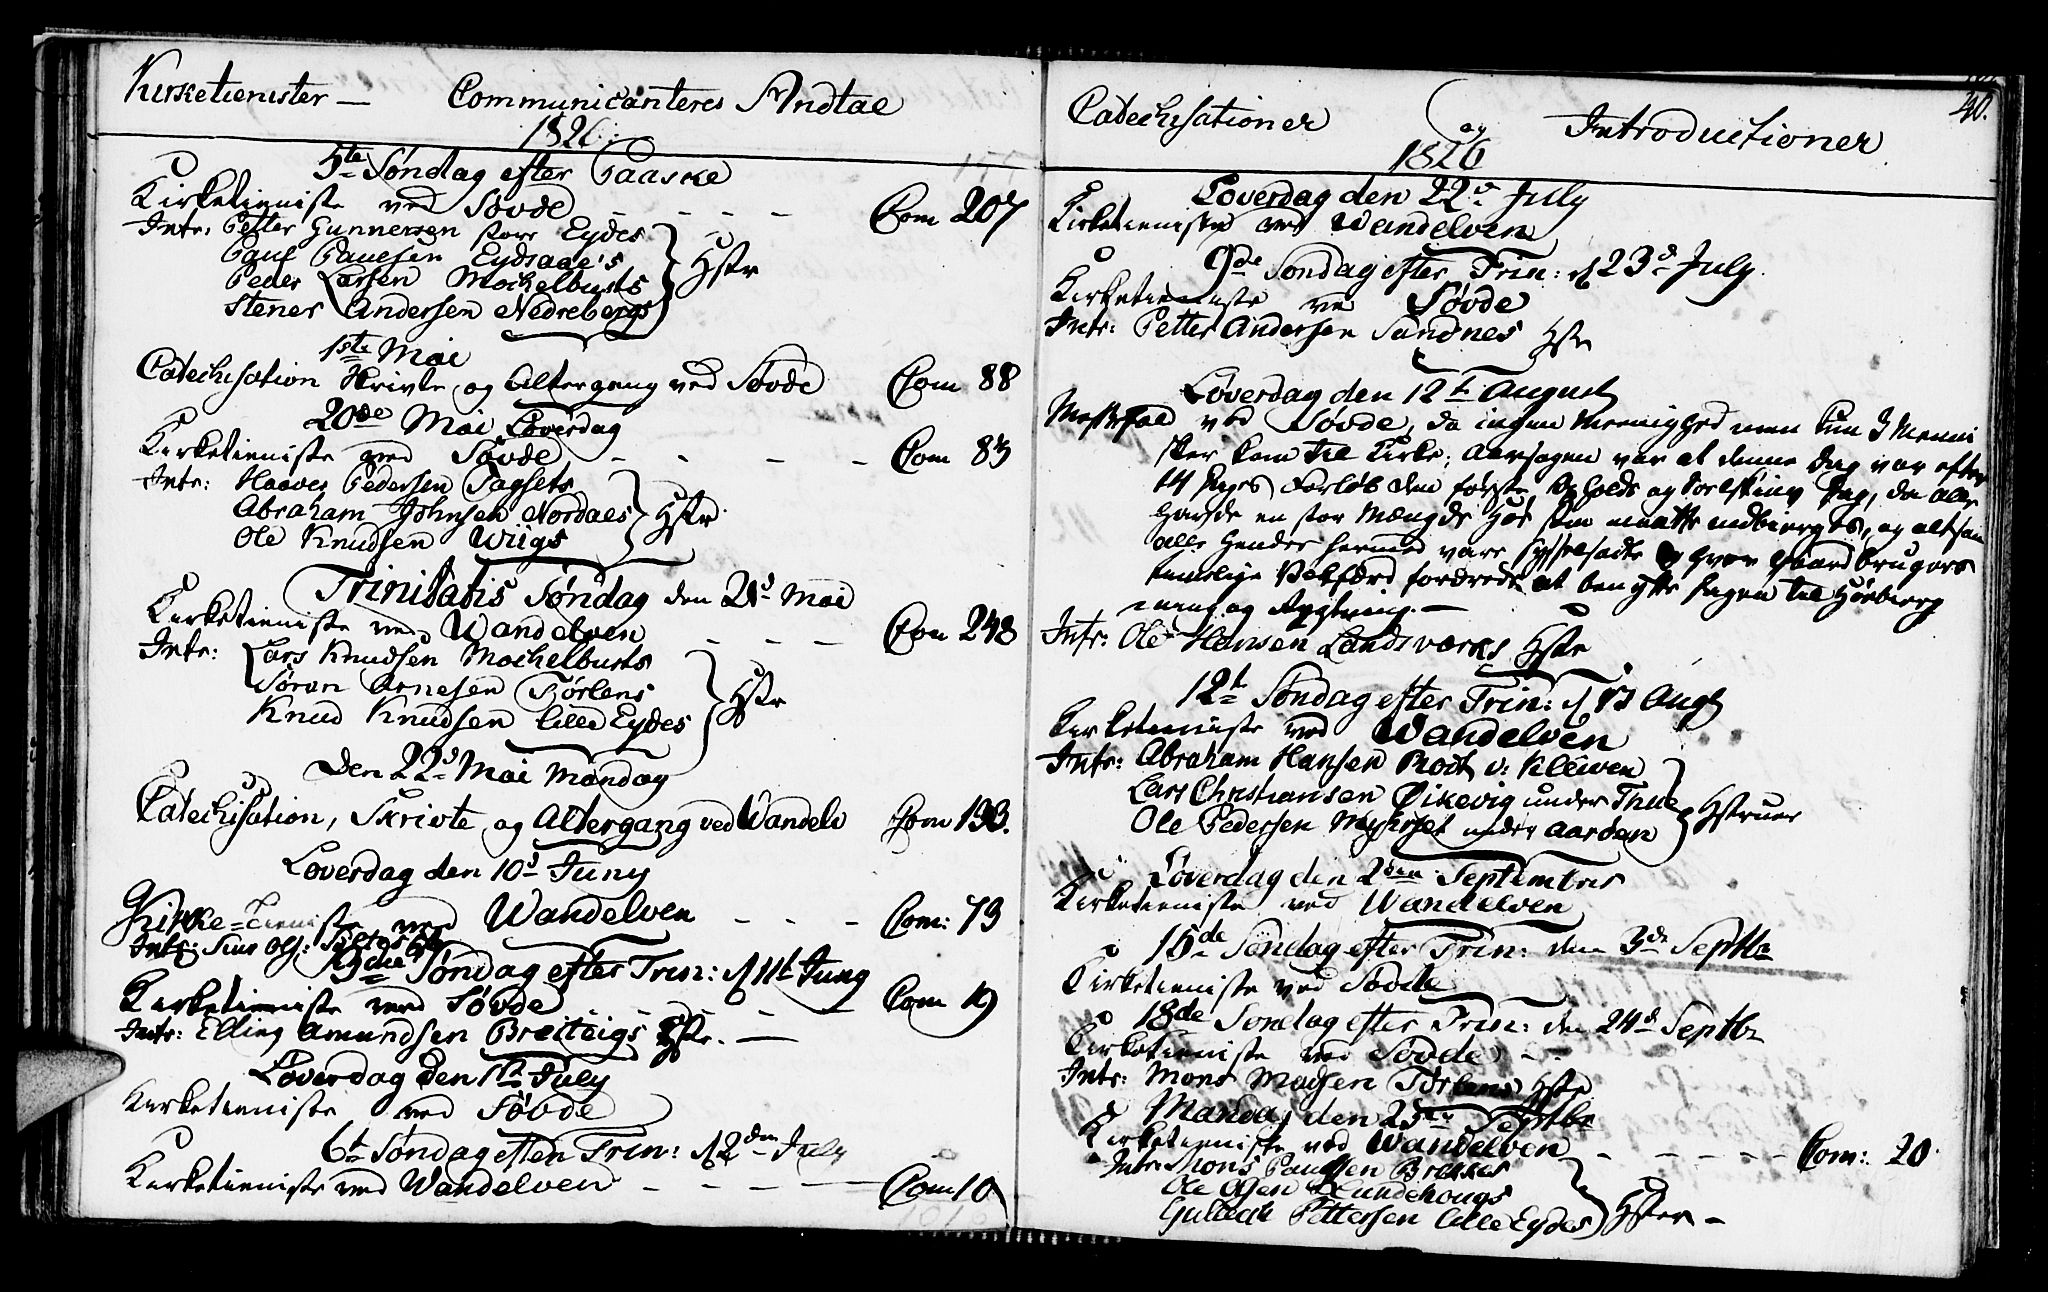 Kirketienister — Communicanteres Andtal
1826.
5te Søndag efter Paaske
Kirketieniste ved Søvde - - - - Com 207
Intr: Petter Gunnersen store Eydes
Paul Paulsen Eydsaae's
Peder Larsen Mochelbusts Hstr
Stener Andersen Nedrebergs
1ste Mai
Catechisation Skrivte og Altergang ved Søvde Com 88
20de Mai Løverdag
Kirketieniste ved Søvde - - - - Com 83
Intr: Haaver Pedersen Sagsets
Abraham Johnsen Nordaes Hstr
Ole Knudsen Wiigs
Trinitatis Søndag den 21d Mai
Kirketieniste ved Wandelven - - - Com 248
Intr: Lars Knudsen Mochelbusts
Søren Arnesen Tørlens Hstr
Knud Knudsen lille Eydes
Den 22d Mai Mandag
Catechisation, Skrivte og Altergang ved Wandelv Com 193.
Løverdag den 10d Juny
Kirke=tieniste ved Wandelven - - - Com: 73
3die Søndag efter Trin: d 11t Juny
Kirketieniste ved Søvde - - - - Com 19
Intr: Elling Amundsen Breiteigs Hstr. —
Løverdag den 1ste July
Kirketieniste ved Søvde
6t Søndag efter Trin: d 2den July
Kirketieniste ved Wandelven - - - Com 10
Catechisationer og Introductioner 40.
1826
Løverdag den 22d July
Kirketieniste ved Wandelven
9de Søndag efter Trin: d 23d July.
Kirketieniste ved Søvde
Intr: Petter Andersen Sandnes Hstr
Løverdag den 12t August
Messefal ved Søvde, da ingen Meenighed men kun 3 Menni
sker kom til Kirke; Aarsagen var at denne Dag var efter
14 Dages Forløb den første Opholds og Dag, da alle
havde en stor Mængde Høe som maatte indbierges, og altsaa
alle Hender hermed vare sysselsadte og hver Gaardbrugers
timelige Velfærd fordrede at benytte Dagen til Høebierg
ning og —
Intr: Ole Hansen Landsværks Hstr
12t Søndag efter Trin: d 13 Augt
Kirketieniste ved Wandelven
Intr: Abraham Hansen v: Kleven
Lars Christiansen Øikevig under Thue Hstruer
Ole Pedersen Myhrset under Aardan
Løverdag den 2den Septembris
Kirketieniste ved Wandelven
15de Søndag efter Trin: den 3de Septbr
Kirketieniste ved Søvde
18de Søndag efter Trin: den 24d Septbr
Kirketieniste ved Søvde - -
Intr: Mons Madsen Tørlens Hstr
Mandag den 25de Septbr
Kirketieniste ved Wandelven - - - - - Com: 20.
Intr: Mons Paulsen Brekkes
Ole Olsen Hundehougs Hstr —
Gulleck Pettersen lille Eydes